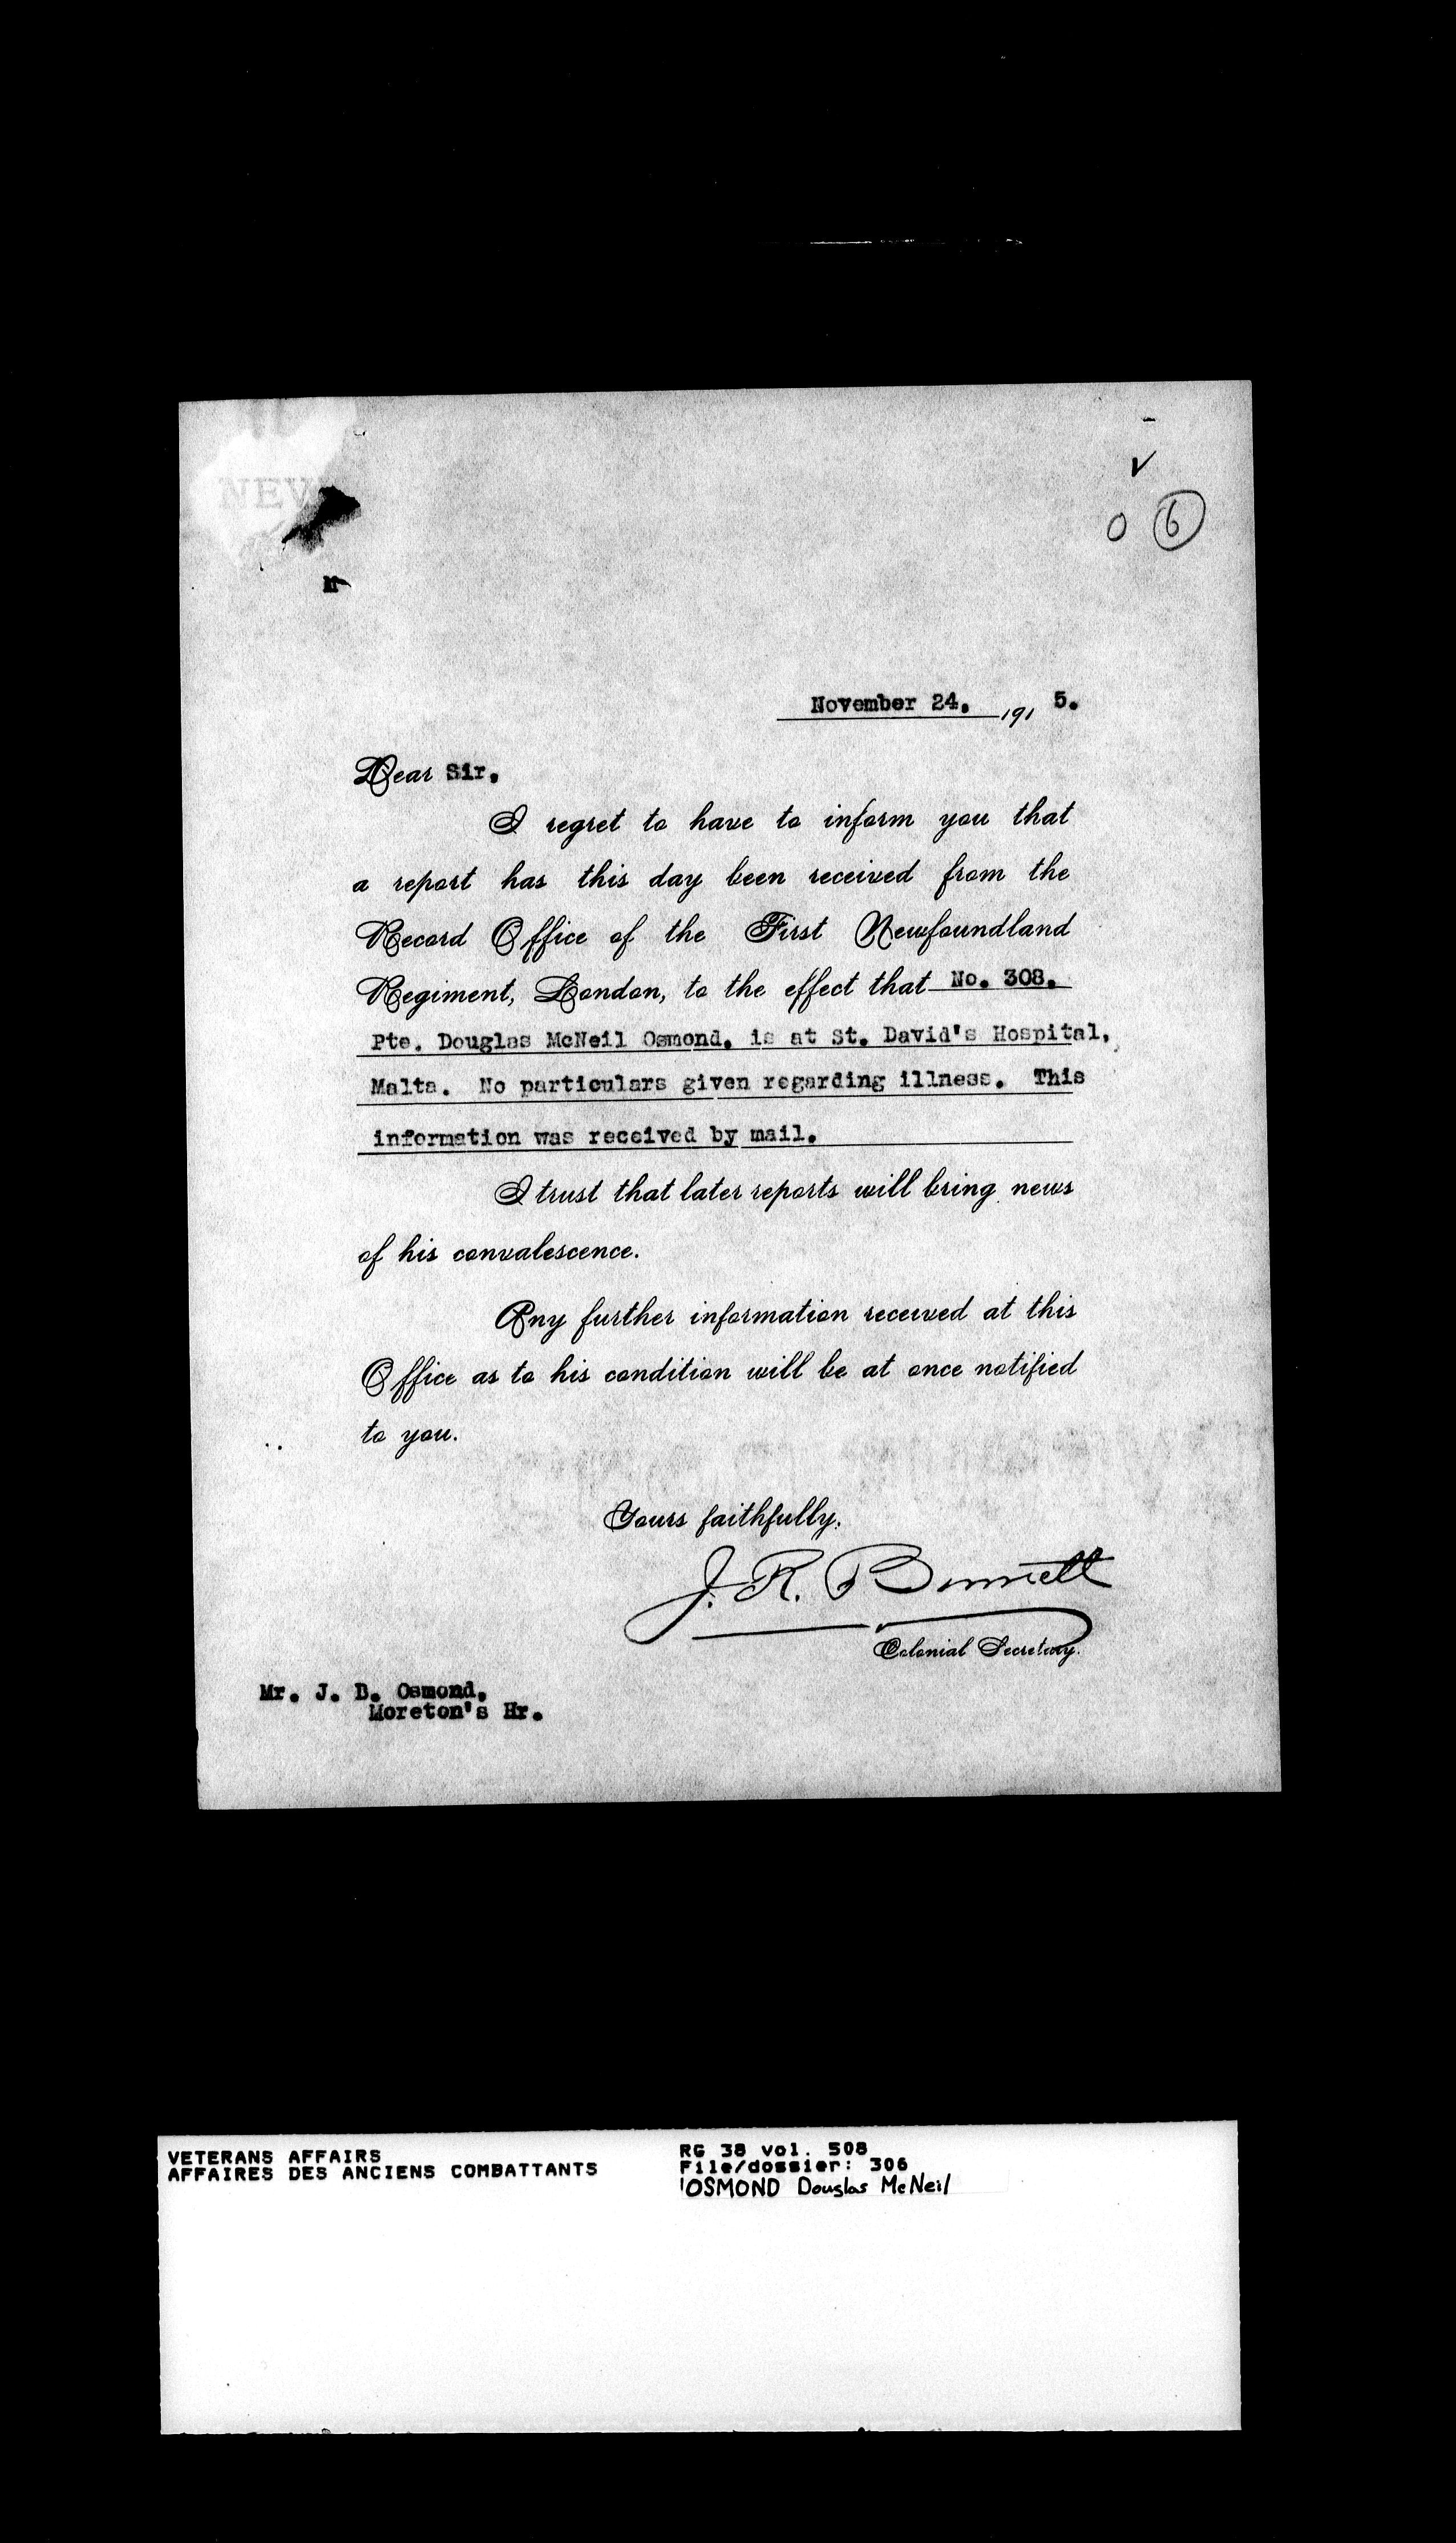 NEW
✓
O 6
M
November 24. 191 5.
Dear Sir.
I regret to have to inform you that
a report has this day been received from the
Record Office of the First Newfoundland
Regiment, London, to the effect that No. 308.
Pte. Douglas McNeil Osmond. is at St. David's Hospital,
Malta. No particulars given regarding illness. This
information was received by mail.
I trust that later reports will bring news
of his convalescence.
Any further information received at this
Office as to his condition will be at once notified
to you.
Yours faithfully,
J. R. Bennett
Colonial Secretary.
Mr. J. B. Osmond,
Moreton's Hr.
VETERANS AFFAIRS
AFFAIRES DES ANCIENS COMBATTANTS
RG 38 vol. 508
File/dossier: 306
OSMOND Douglas McNeil